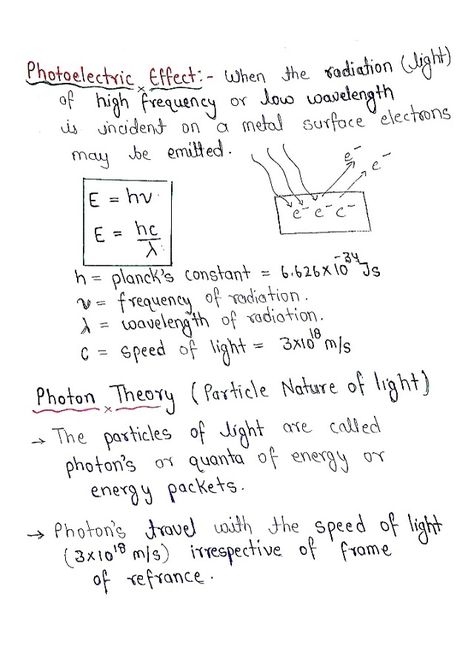 Photoelectric Effect:- When the radiation (light)
of high frequency or low wavelength
is incident on a metal surface electrons
may be emitted.
e⁻
e⁻
e⁻ e⁻ e⁻
E = hν
E = hc/λ
h = planck's constant = 6.626×10⁻³⁴ Js
ν = frequency of radiation.
λ = wavelength of radiation.
c = speed of light = 3×10¹⁸ m/s
Photon Theory (Particle Nature of light)
→ The particles of light are called
photon's or quanta of energy or
energy packets.
→ Photon's travel with the speed of light
(3×10¹⁸ m/s) irrespective of frame
of refrance.